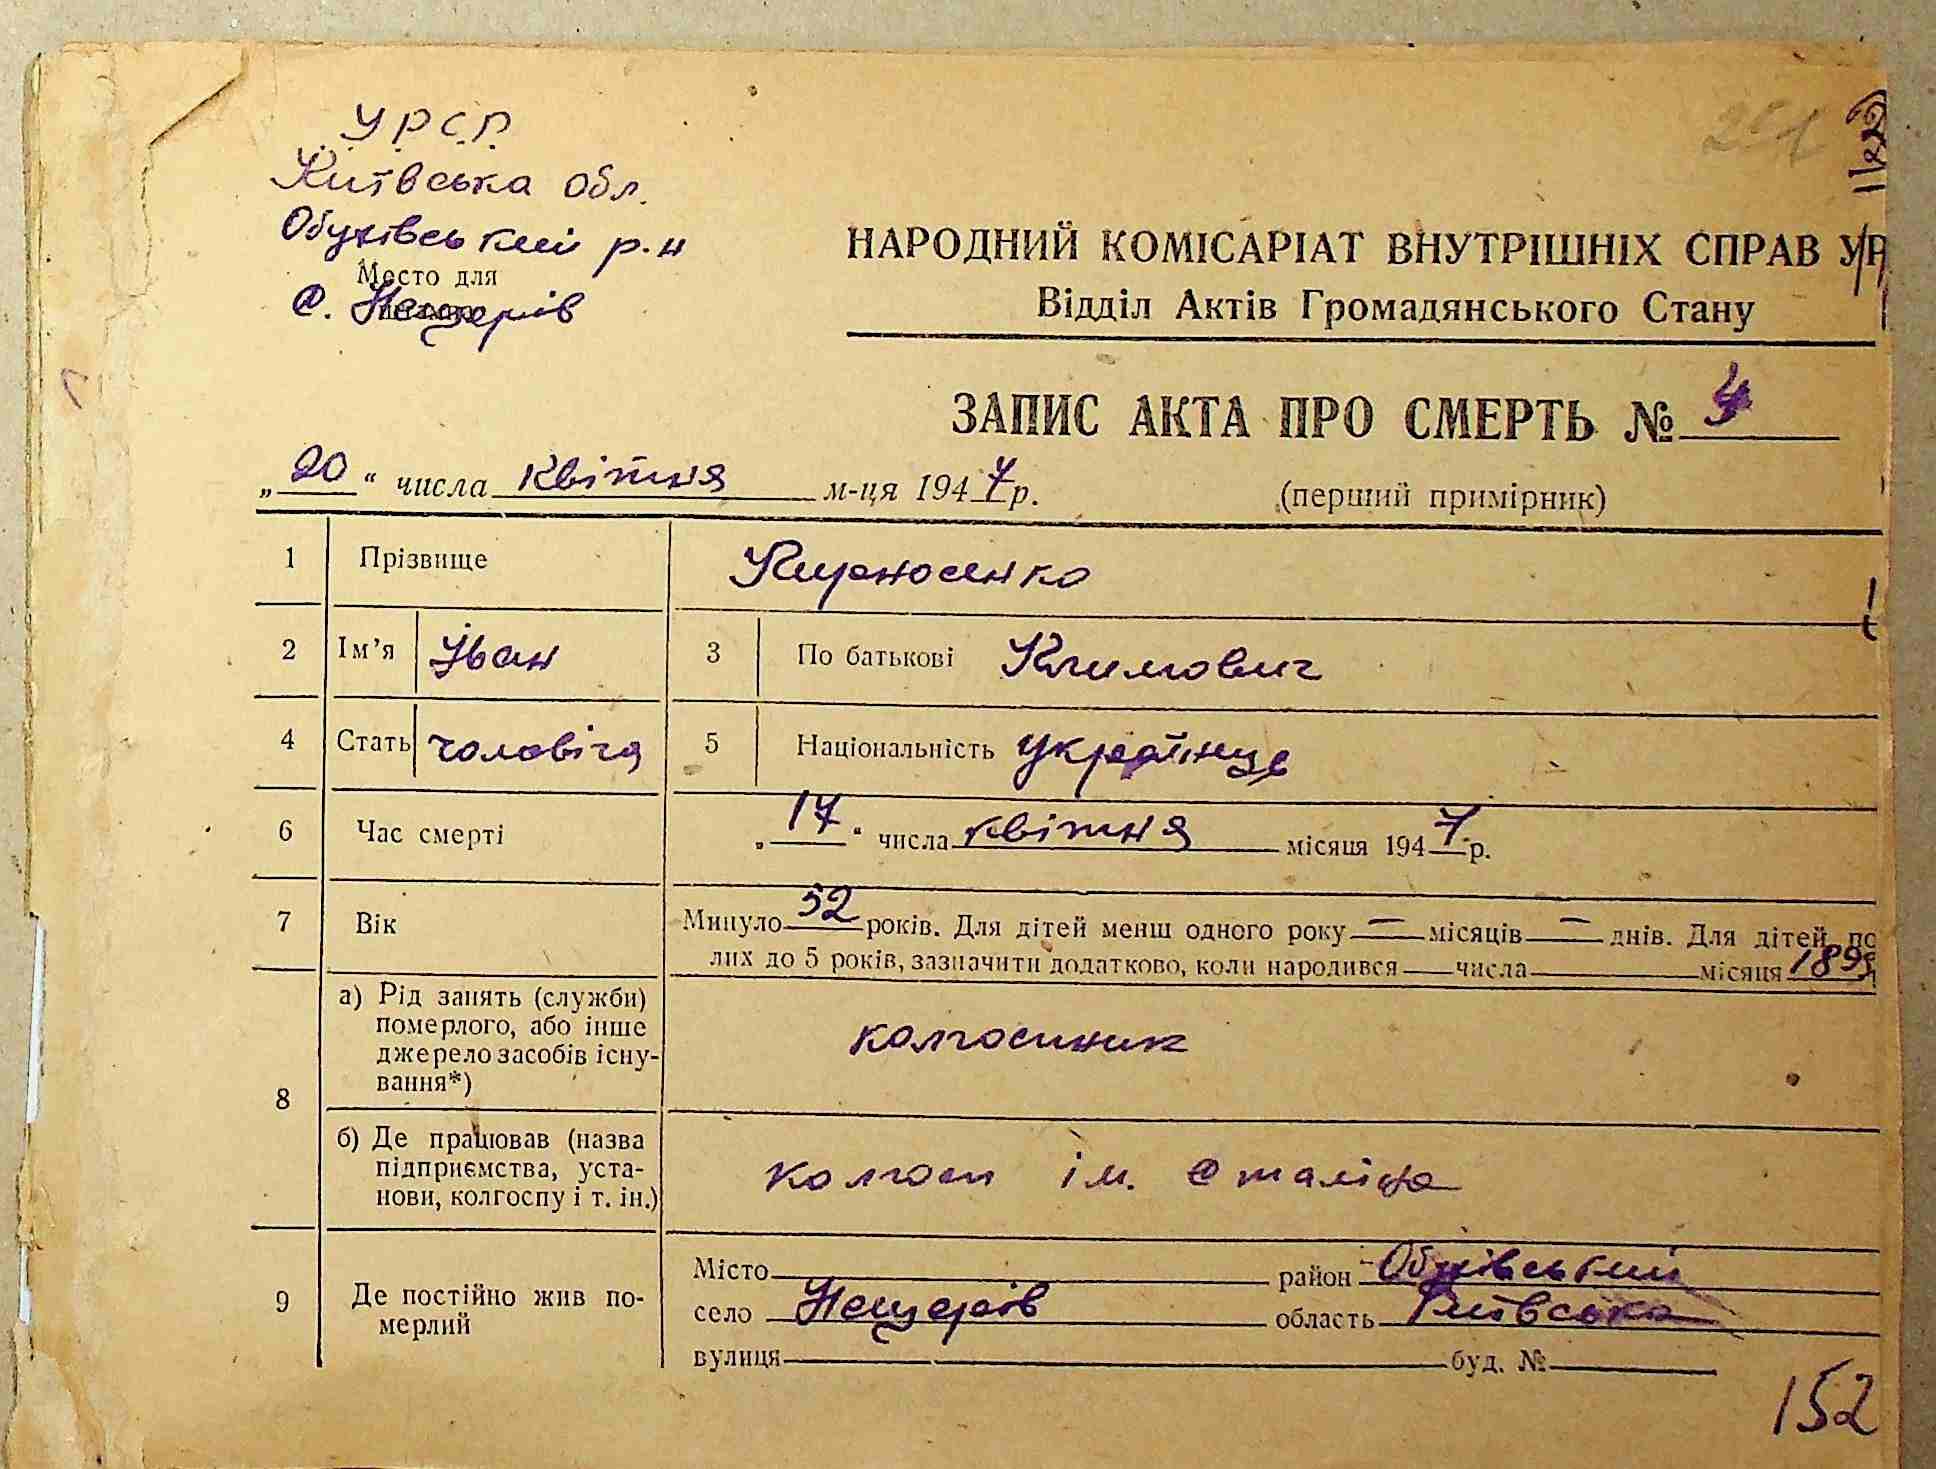 У.Р.С.Р.
Київська обл.
Обухівський р-н
Место для
с. Нещерів
НАРОДНИЙ КОМІСАРІАТ ВНУТРІШНІХ СПРАВ УР
Відділ Актів Громадянського Стану
ЗАПИС АКТА ПРО СМЕРТЬ № 4
„20“ числа квітня м-ця 1947 р. (перший примірник)
1 Прізвище Кирносенко
2 Ім’я Іван 3 По батькові Климович
4 Стать чоловіча 5 Національність українець
6 Час смерті „17“ числа квітня місяця 1947 р.
7 Вік Минуло 52 років. Для дітей менш одного року — місяців — днів. Для дітей по
лих до 5 років, зазначити додатково, коли народився — числа місяця 1895
8 а) Рід занять (служби)
померлого, або інше
джерело засобів існу-
вання*) колгоспник
б) Де працював (назва
підприємства, уста-
нови, колгоспу і т. ін.) колгосп ім. Сталіна
9 Де постійно жив по-
мерлий
Місто район Обухівський
село Нещерів область Київська
вулиця буд. №
152